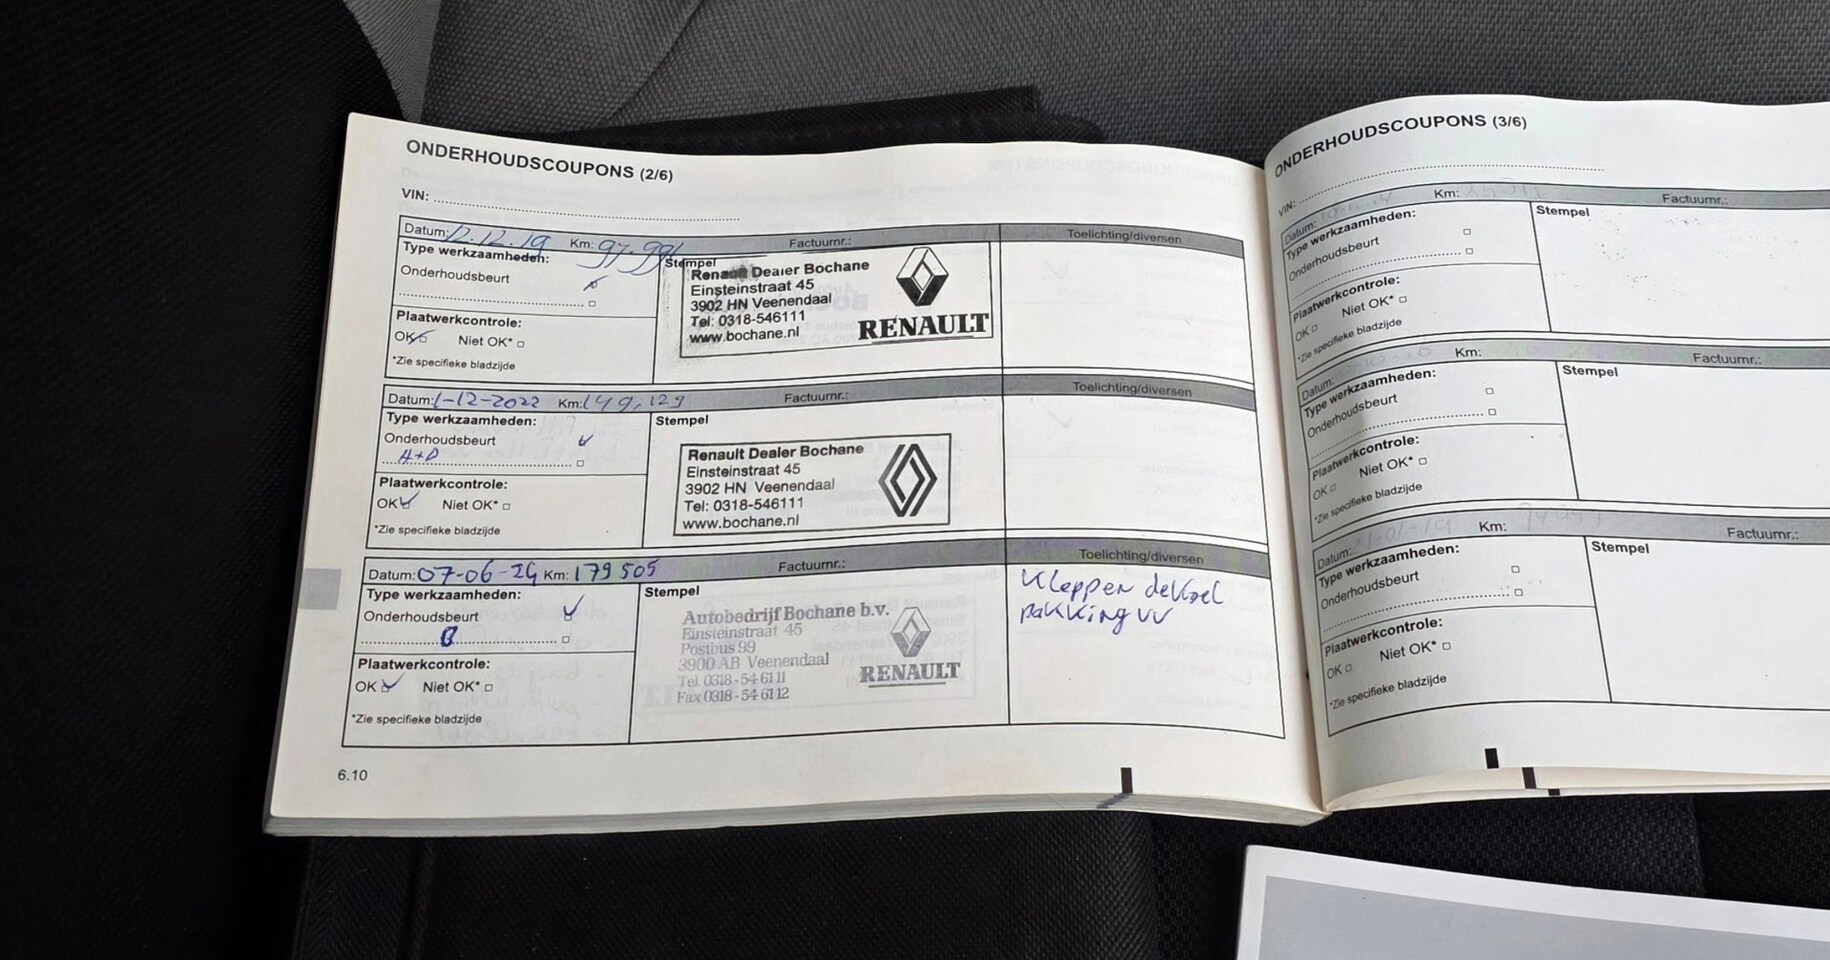 ONDERHOUDSCOUPONS (2/6)
VIN:
Datum: 12.12.19 Km: 97.991 Factuurnr.: Toelichting/diversen
Type werkzaamheden:
Onderhoudsbeurt
Plaatwerkcontrole:
OK Niet OK*
*Zie specifieke bladzijde
Stempel
Renault Dealer Bochane
Einsteinstraat 45
3902 HN Veenendaal
Tel: 0318-546111
www.bochane.nl
RENAULT
Datum: 1-12-2022 Km: 149.129 Factuurnr.: Toelichting/diversen
Type werkzaamheden:
Onderhoudsbeurt
A+D
Plaatwerkcontrole:
OK Niet OK*
*Zie specifieke bladzijde
Stempel
Renault Dealer Bochane
Einsteinstraat 45
3902 HN Veenendaal
Tel: 0318-546111
www.bochane.nl
Datum: 07-06-24 Km: 179505 Factuurnr.: Toelichting/diversen
Type werkzaamheden:
Onderhoudsbeurt
B
Plaatwerkcontrole:
OK Niet OK*
*Zie specifieke bladzijde
Stempel
Autobedrijf Bochane b.v.
Einsteinstraat 45
Postbus 99
3900 AB Veenendaal
Tel. 0318-546111
Fax 0318-546112
RENAULT
Kleppen deksel
pakking vv
6.10
ONDERHOUDSCOUPONS (3/6)
VIN:
Datum: Km: Factuurnr.:
Type werkzaamheden:
Onderhoudsbeurt
Plaatwerkcontrole:
OK Niet OK*
*Zie specifieke bladzijde
Stempel
Datum: Km: Factuurnr.:
Type werkzaamheden:
Onderhoudsbeurt
Plaatwerkcontrole:
OK Niet OK*
*Zie specifieke bladzijde
Stempel
Datum: Km: Factuurnr.:
Type werkzaamheden:
Onderhoudsbeurt
Plaatwerkcontrole:
OK Niet OK*
*Zie specifieke bladzijde
Stempel